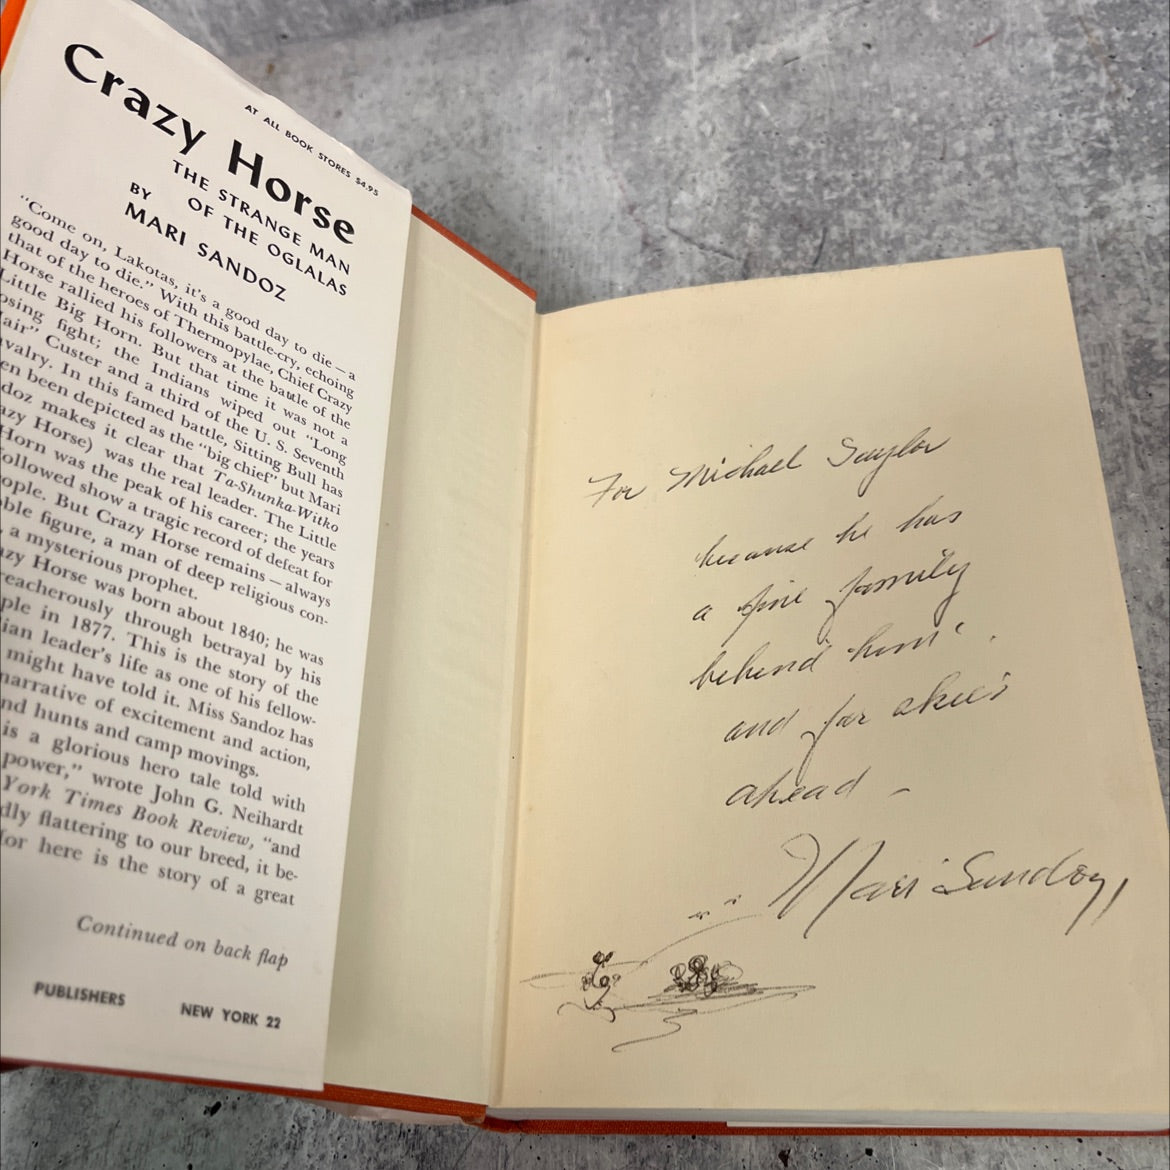 AT ALL BOOK STORES $4.95
Crazy Horse
THE STRANGE MAN
OF THE OGLALAS
BY
MARI SANDOZ
"Come on, Lakotas, it's a good day to die—a
good day to die." With this battle-cry, echoing
that of the heroes of Thermopylae, Chief Crazy
Horse rallied his followers at the battle of the
Little Big Horn. But that time it was not a
osing fight; the Indians wiped out "Long
Hair" Custer and a third of the U. S. Seventh
avalry. In this famed battle, Sitting Bull has
en been depicted as the "big chief" but Mari
doz makes it clear that Ta-Shunka-Witko
azy Horse) was the real leader. The Little
Horn was the peak of his career; the years
ollowed show a tragic record of defeat for
ople. But Crazy Horse remains—always
ble figure, a man of deep religious con-
, a mysterious prophet.
azy Horse was born about 1840; he was
reacherously through betrayal by his
ple in 1877. This is the story of the
ian leader's life as one of his fellow-
might have told it. Miss Sandoz has
narrative of excitement and action,
nd hunts and camp movings.
is a glorious hero tale told with
power," wrote John G. Neihardt
York Times Book Review, "and
dly flattering to our breed, it be-
for here is the story of a great
Continued on back flap
PUBLISHERS NEW YORK 22
For Michael Saylor
because he has
a fine family
behind him
and far skies
ahead —
Mari Sandoz